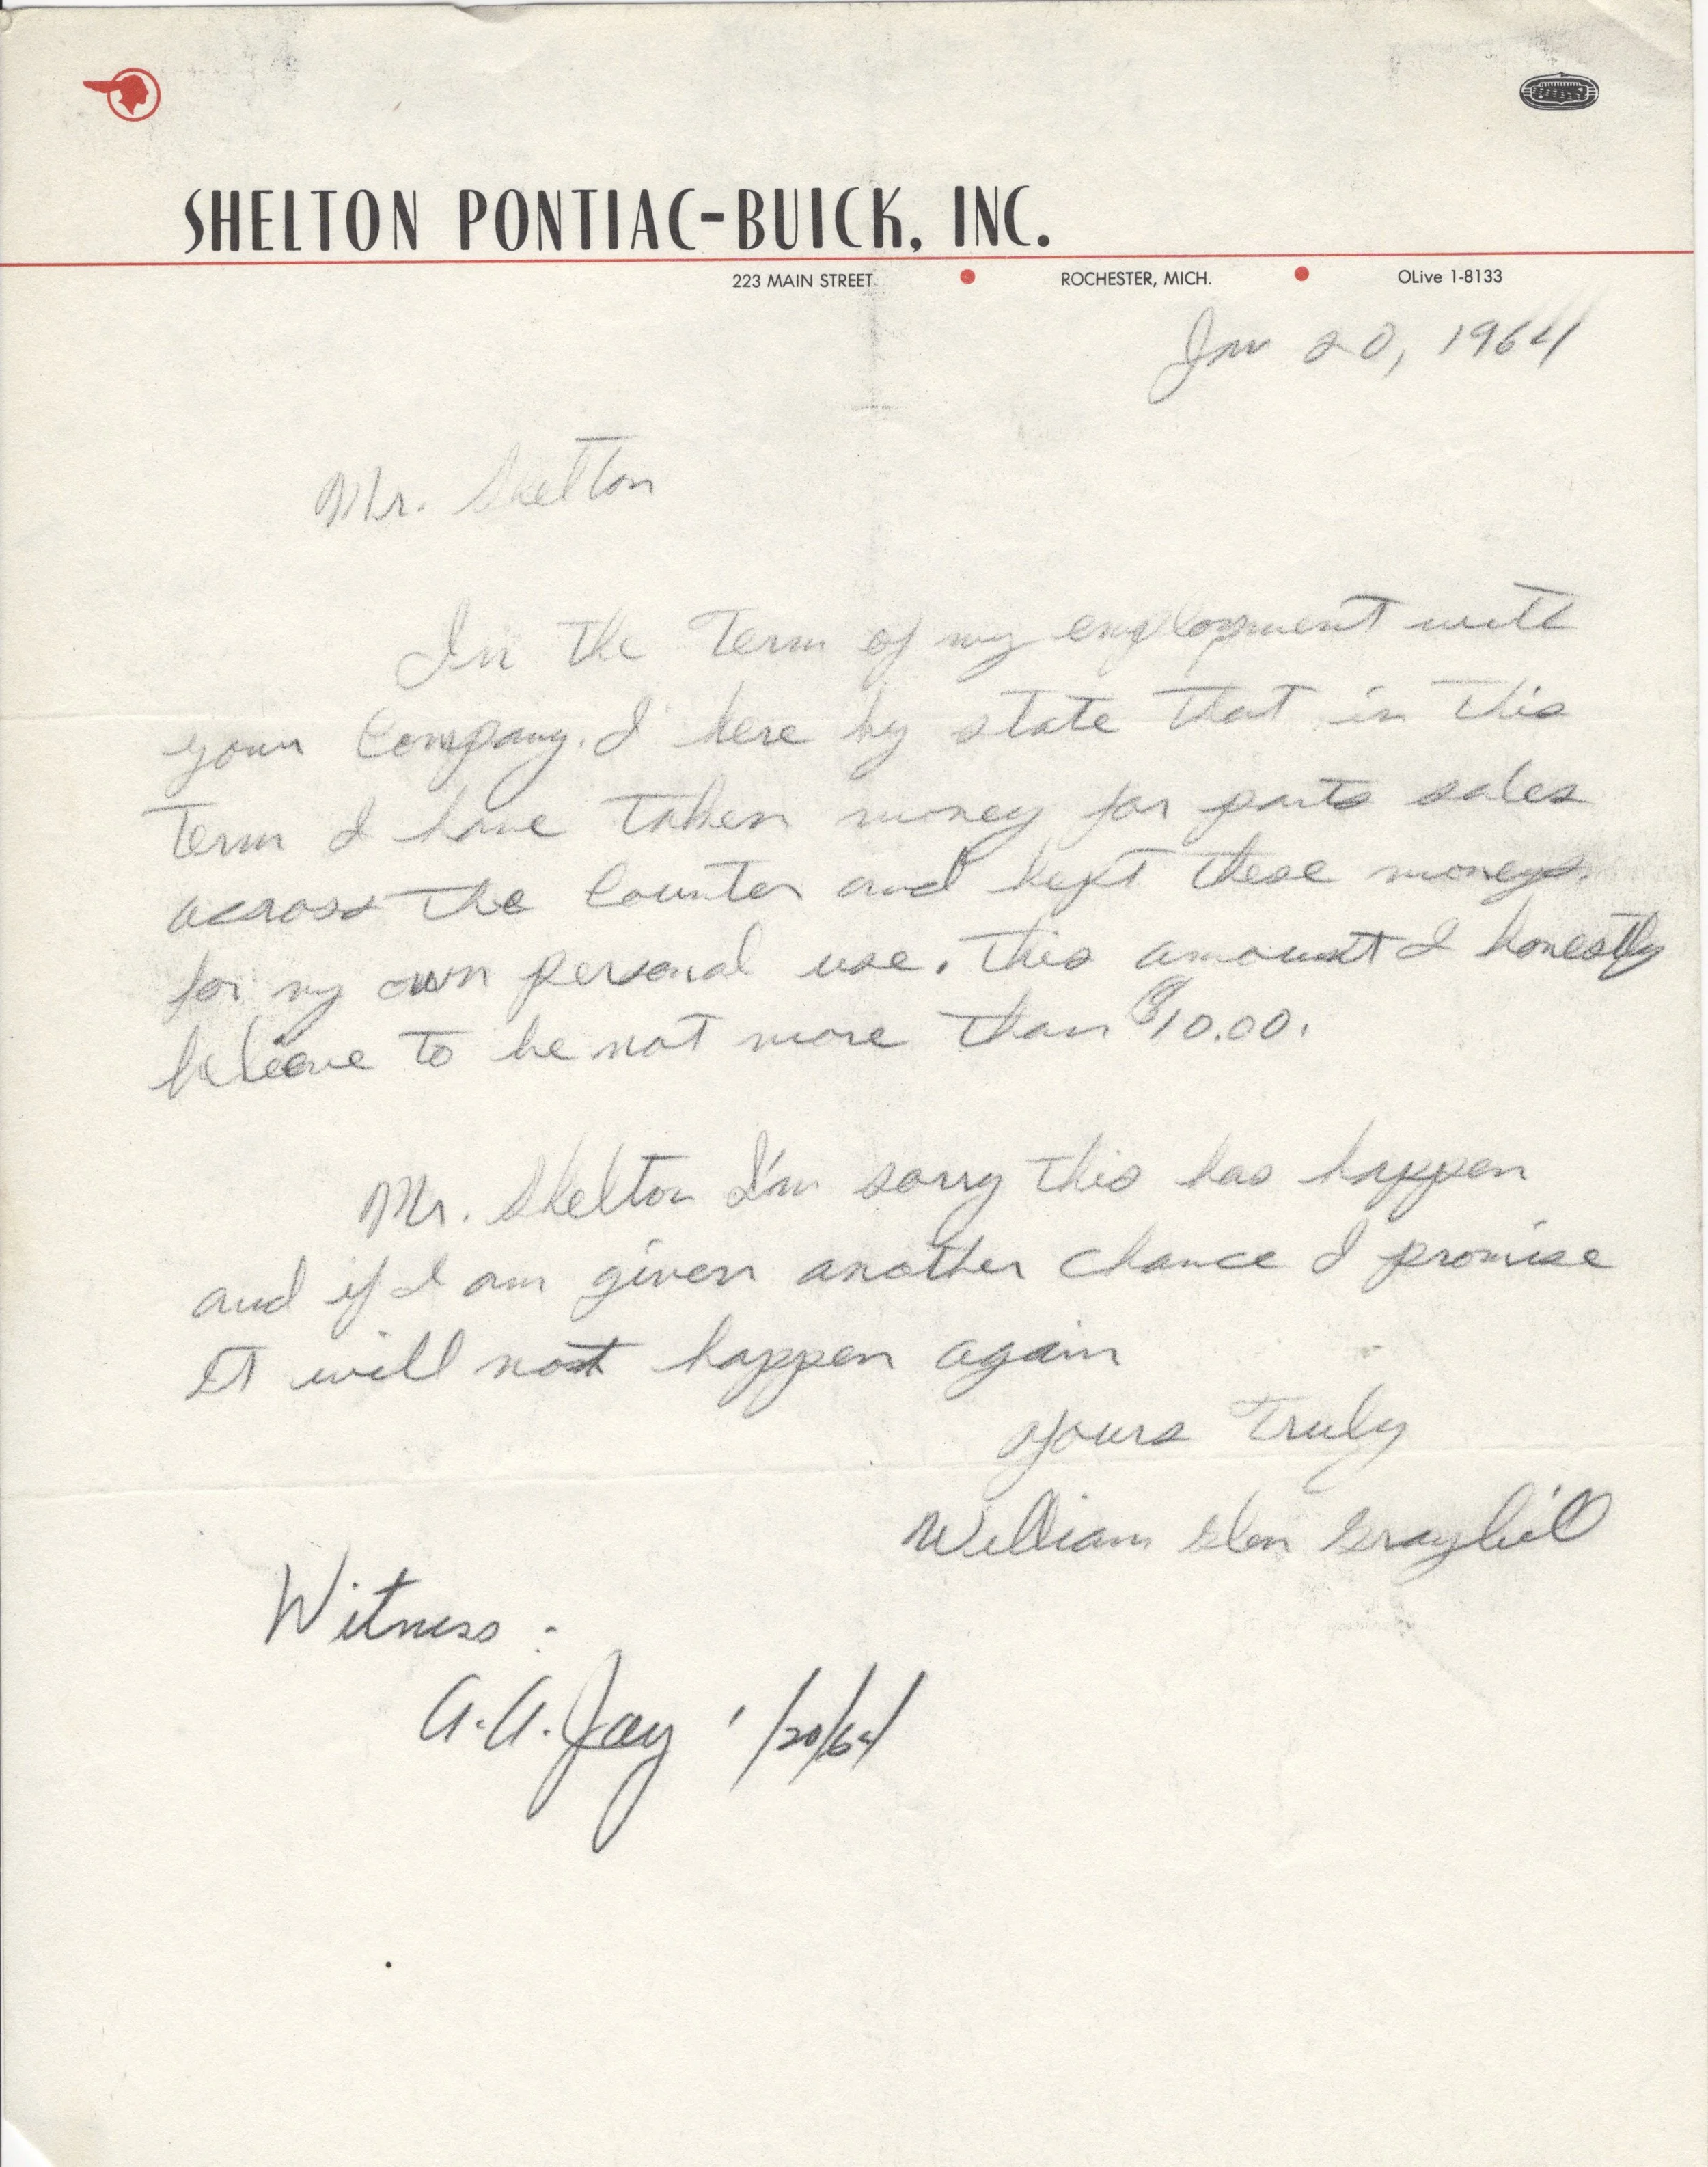 SHELTON PONTIAC-BUICK, INC.
223 MAIN STREET • ROCHESTER, MICH. • OLive 1-8133
Jan 20, 1964
Mr. Shelton
In the Term of my employment with
your Company. I here by state that in this
Term I have taken money for parts sales
across the Counter and kept these moneys.
for my own personal use. this amount I honestly
beleave to be not more than $10.00.
Mr. Shelton I'm sorry this has happen
and if I am given another chance I promise
It will not happen again
Yours Truly
William Glen Graybill
Witness:
A.A. Jay 1/20/64